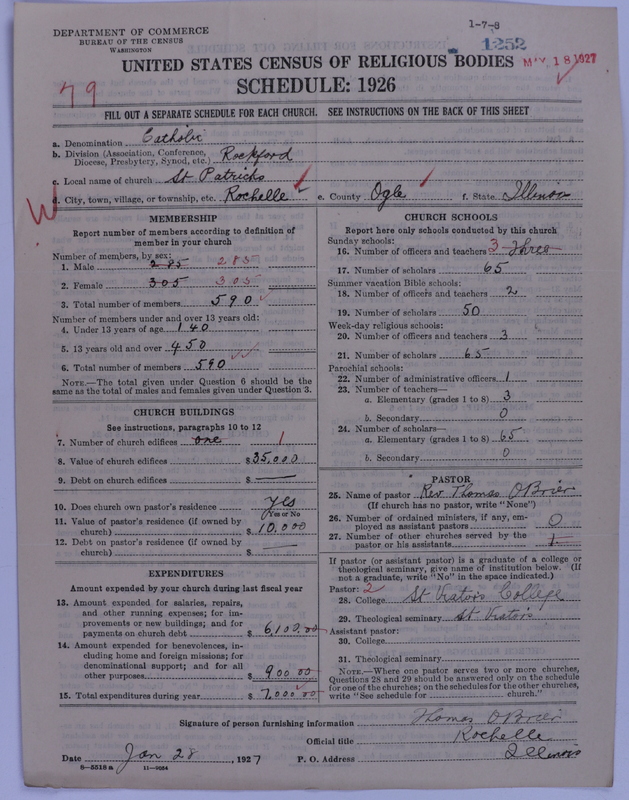 DEPARTMENT OF COMMERCE
BUREAU OF THE CENSUS
WASHINGTON
1-7-8
1252
UNITED STATES CENSUS OF RELIGIOUS BODIES
MAY 18 1927
SCHEDULE: 1926
79
FILL OUT A SEPARATE SCHEDULE FOR EACH CHURCH. SEE INSTRUCTIONS ON THE BACK OF THIS SHEET
a. Denomination Catholic
b. Division (Association, Conference, Diocese, Presbytery, Synod, etc.) Rockford
c. Local name of church St Patricks
d. City, town, village, or township, etc. Rochelle e. County Ogle f. State Illinois
W
MEMBERSHIP
Report number of members according to definition of
member in your church
Number of members, by sex:
1. Male 285 285
2. Female 305 305
3. Total number of members 590
Number of members under and over 13 years old:
4. Under 13 years of age 140
5. 13 years old and over 450
6. Total number of members 590
NOTE.—The total given under Question 6 should be the
same as the total of males and females given under Question 3.
CHURCH BUILDINGS
See instructions, paragraphs 10 to 12
7. Number of church edifices one 1
8. Value of church edifices $35,000
9. Debt on church edifices $ —
10. Does church own pastor's residence yes
(Yes or No)
11. Value of pastor's residence (if owned by
church) $ 10,000
12. Debt on pastor's residence (if owned by
church) $ —
EXPENDITURES
Amount expended by your church during last fiscal year
13. Amount expended for salaries, repairs,
and other running expenses; for im-
provements or new buildings; and for
payments on church debt $ 6,100.00
14. Amount expended for benevolences, in-
cluding home and foreign missions; for
denominational support; and for all
other purposes $ 900 00
15. Total expenditures during year $ 7,000 00
CHURCH SCHOOLS
Report here only schools conducted by this church
Sunday schools:
16. Number of officers and teachers 3 Three
17. Number of scholars 65
Summer vacation Bible schools:
18. Number of officers and teachers 2
19. Number of scholars 50
Week-day religious schools:
20. Number of officers and teachers 3
21. Number of scholars 65
Parochial schools:
22. Number of administrative officers 1
23. Number of teachers—
a. Elementary (grades 1 to 8) 3
b. Secondary 0
24. Number of scholars—
a. Elementary (grades 1 to 8) 65
b. Secondary 0
PASTOR
25. Name of pastor Rev. Thomas O'Brien
(If church has no pastor, write "None")
26. Number of ordained ministers, if any, em-
ployed as assistant pastors 0
27. Number of other churches served by the
pastor or his assistants 1
If pastor (or assistant pastor) is a graduate of a college or
theological seminary, give name of institution below. (If
not a graduate, write "No" in the space indicated.)
Pastor: 2
28. College St Viators College
29. Theological seminary St Viators
Assistant pastor:
30. College
31. Theological seminary
NOTE.—Where one pastor serves two or more churches,
Questions 28 and 29 should be answered only on the schedule
for one of the churches; on the schedules for the other churches,
write "See schedule for church."
Signature of person furnishing information Thomas O'Brien
Official title Rochelle
Date Jan 28, 1927 P. O. Address Illinois
8—5518 a 11—9084